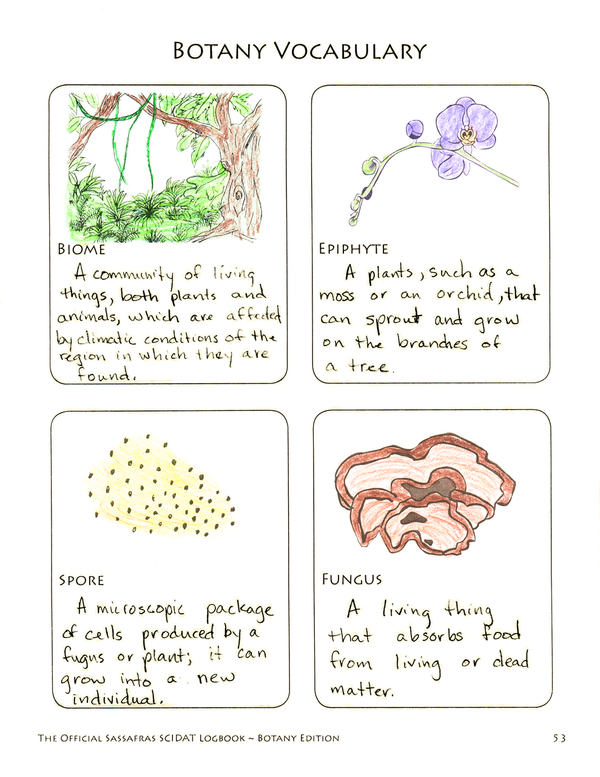 BOTANY VOCABULARY
BIOME
A community of living
things, both plants and
animals, which are affected
by climatic conditions of the
region in which they are
found.
EPIPHYTE
A plants, such as a
moss or an orchid, that
can sprout and grow
on the branches of
a tree.
SPORE
A microscopic package
of cells produced by a
fugus or plant; it can
grow into a new
individual.
FUNGUS
A living thing
that absorbs food
from living or dead
matter.
THE OFFICIAL SASSAFRAS SCIDAT LOGBOOK ~ BOTANY EDITION
53